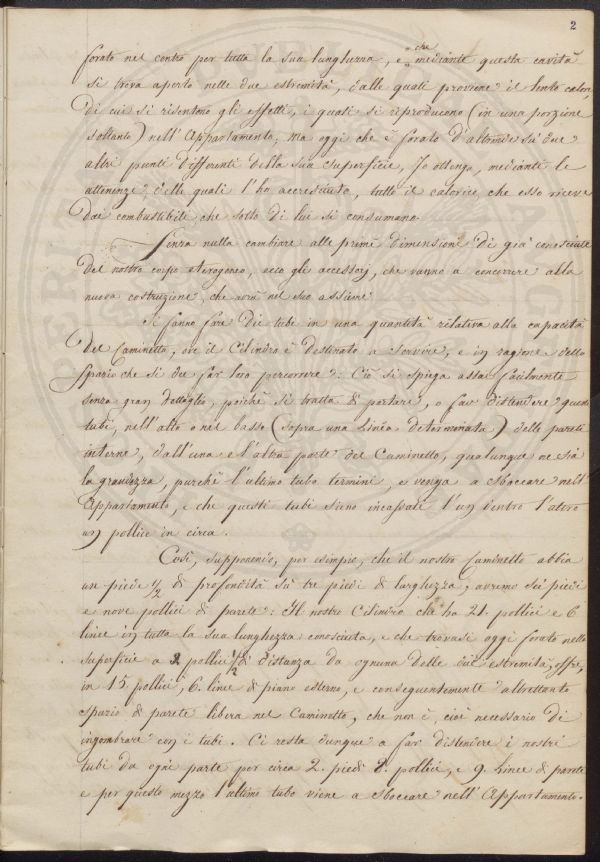 2
forato nel centro per tutta la sua lunghezza, e che mediante questa cavità
si trova aperto nelle due estremità, dalle quali proviene il lento calore,
di cui si risentono gli effetti, i quali si riproducono (in una porzione
soltanto) nell'Appartamento, ma oggi che è forato d'altronde sù due
altri punti differenti della sua superficie, Io ottengo, mediante le
attinenze, delle quali l'ho accresciuto, tutto il calorico che esso riceve
dai combustibile che sotto di lui si consumano.
Senza nulla cambiare alle prime dimensioni di già conosciute
del nostro corpo eterogeneo, ecco gli accessorj, che vanno a concorrere alla
nuova costruzione, che avrà nel suo assieme
Si fanno fare dei tubi in una quantità relativa alla capacità
del Caminetto, ove il Cilindro è destinato a servire, e in ragione dello
spazio che si dee far loro percorrere: Ciò si spiega assai facilmente
senza gran dettaglio, poichè si tratta di portare, o far distendere questi
tubi, nell'alto o nel basso (sopra una Linea determinata) delle pareti
interne, dall'una e l'altra parte del Caminetto, qualunque ne sia
la grandezza, purchè l'ultimo tubo termini, e venga a sboccare nell'
Appartamento, e che questi tubi sieno incassati l'un dentro l'altro
un pollice in circa.
Così, supponendo, per esempio, che il nostro Caminetto abbia
un piede 1/2 di profondità sù tre piedi di larghezza, avremo sei piedi
e nove pollici di parete: Il nostro Cilindro che ha 21. pollici e 6
linee in tutta la sua lunghezza conosciuta, e che trovasi oggi forato nella
superficie a 2 pollici 1/2 di distanza da ognuna delle due estremità, offre,
in 15 pollici, 6. linee di piano esterno, e conseguentemente altrettanto
spazio di parete libera nel Caminetto, che non è, cioè necessario di
ingombrare con i tubi. Ci resta dunque a far distendere i nostri
tubi da ogni parte per circa 2. piedi 8. pollici, e 9. Linee di parete
e per questo mezzo l'ultimo tubo viene a sboccare nell'Appartamento.